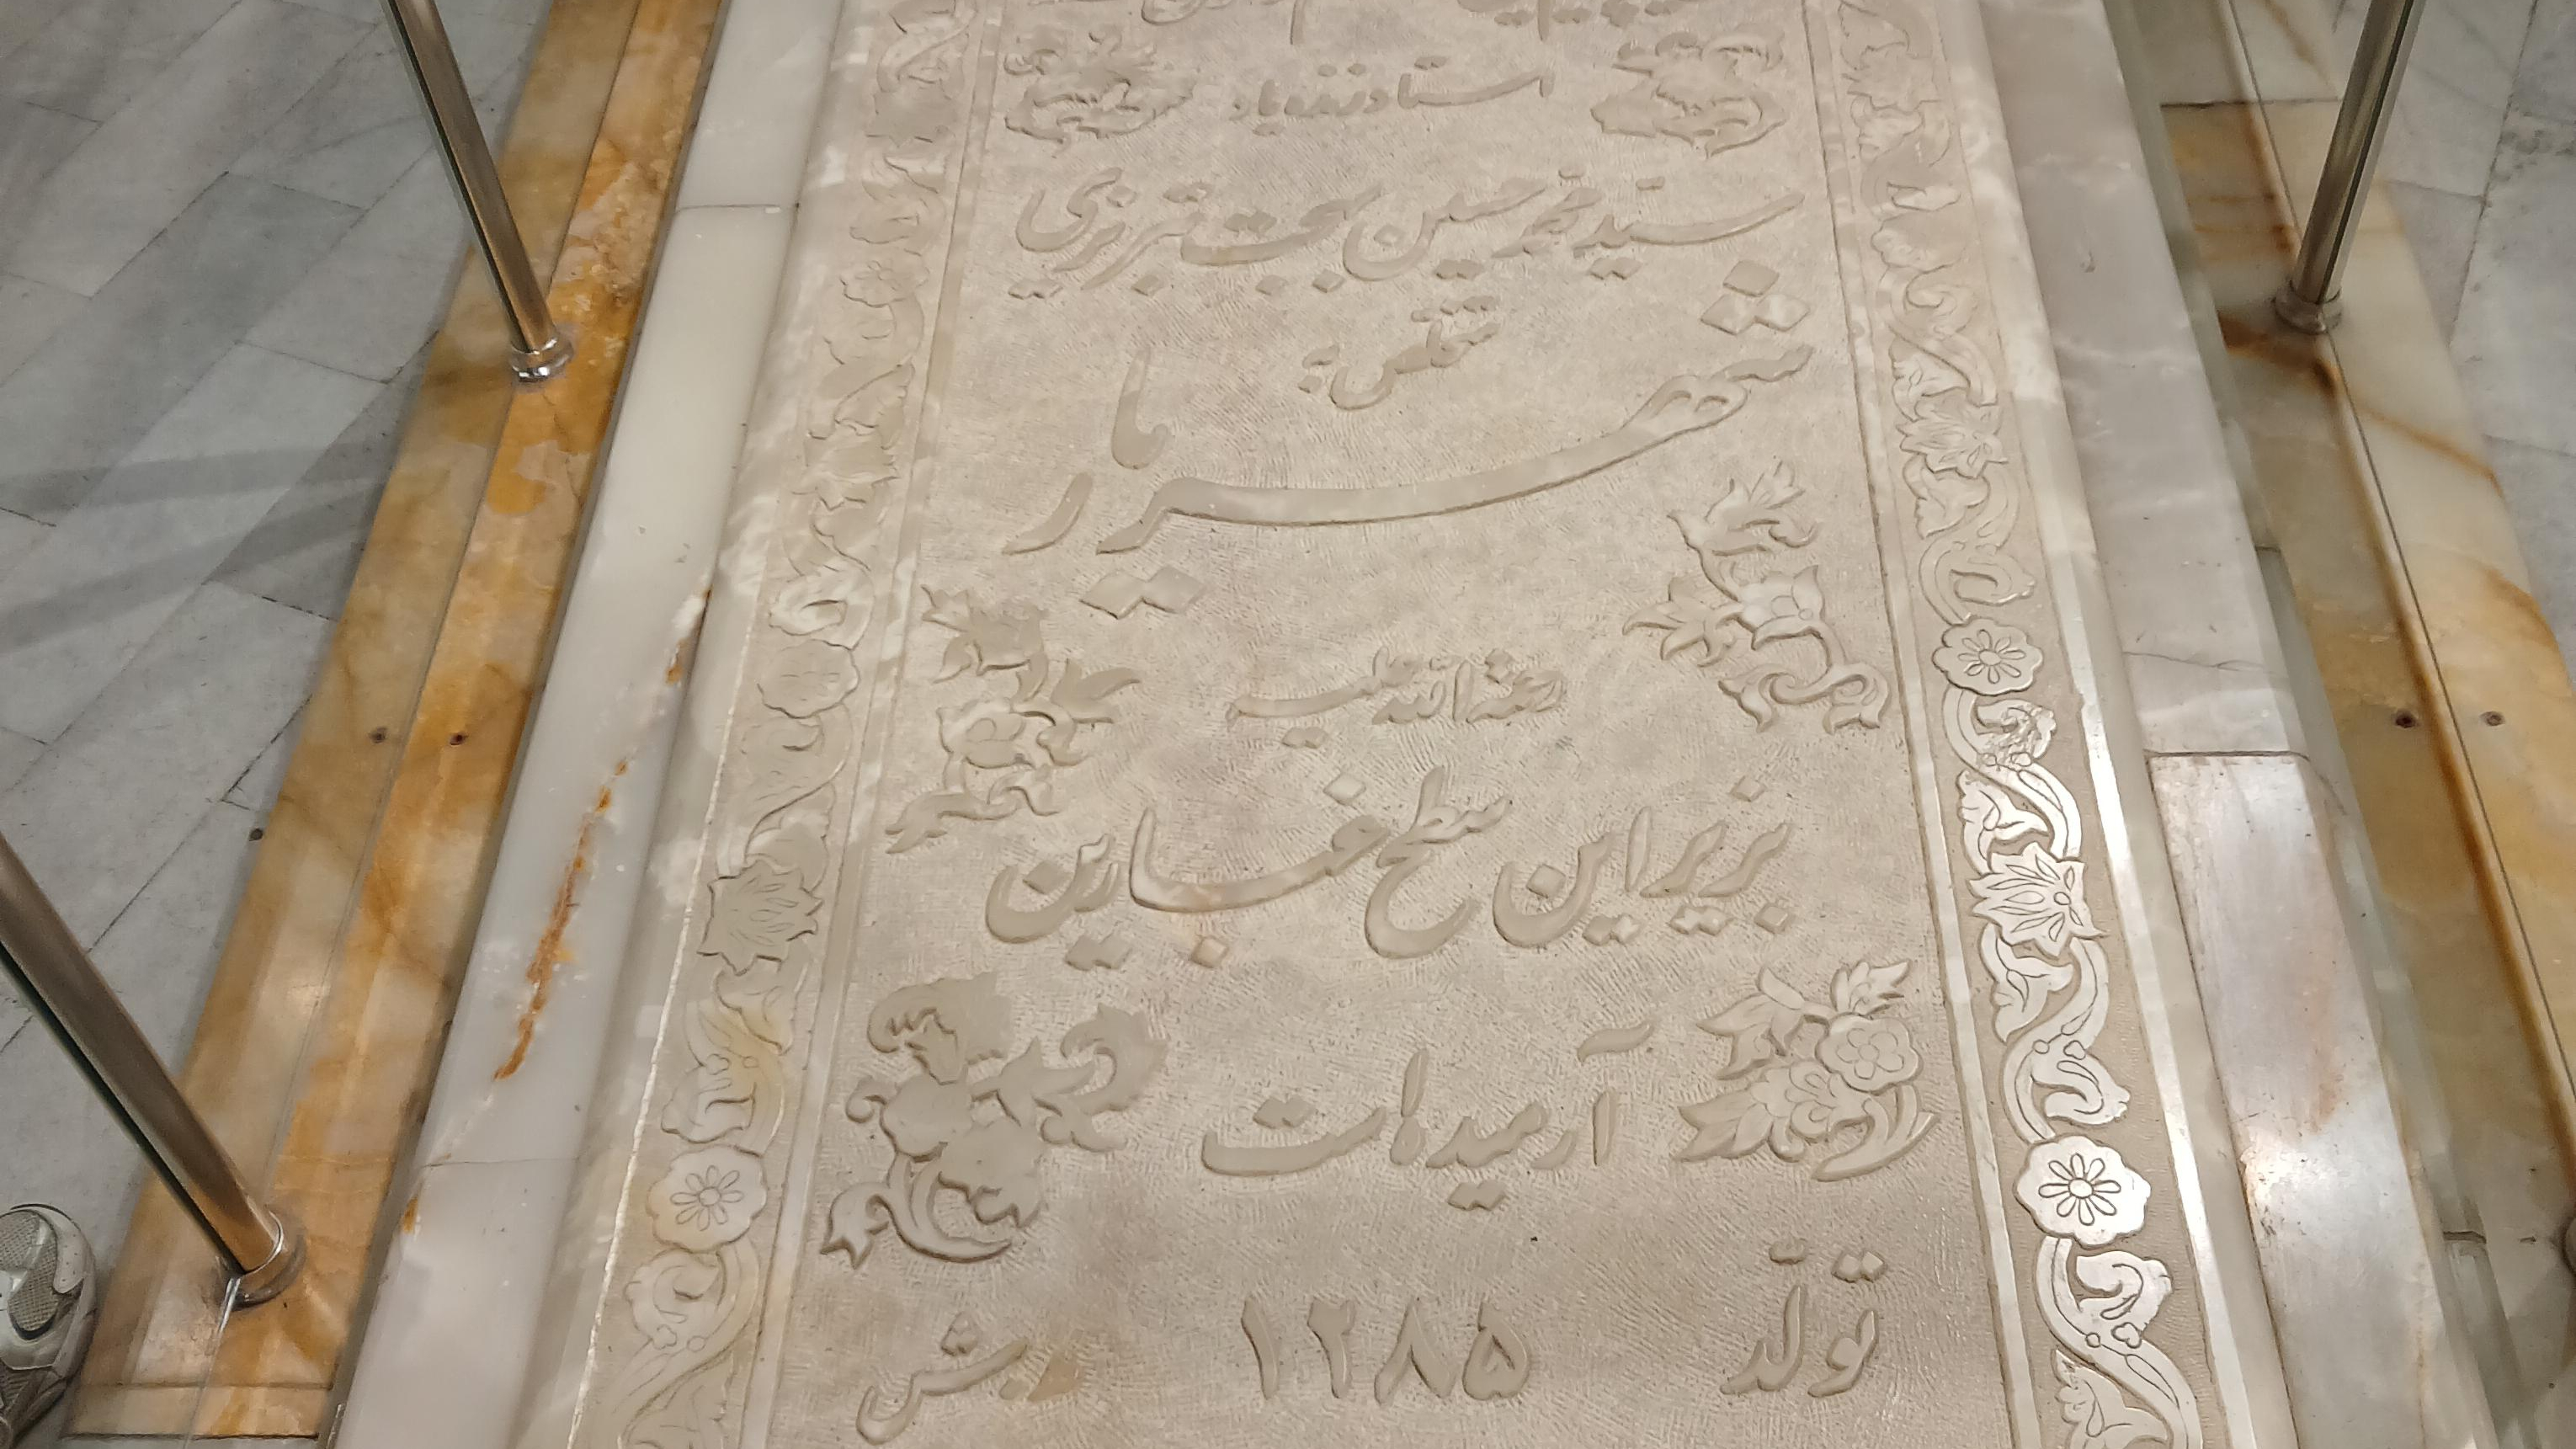 استاد زنده یاد
سیّد محمّد حسین بهجت تبریزی
متخلص به
شهریار
رحمة الله علیه
بزیر این سطح غبارین
آرمیده است
تولّد ۱۲۸۵ ه‍ ش